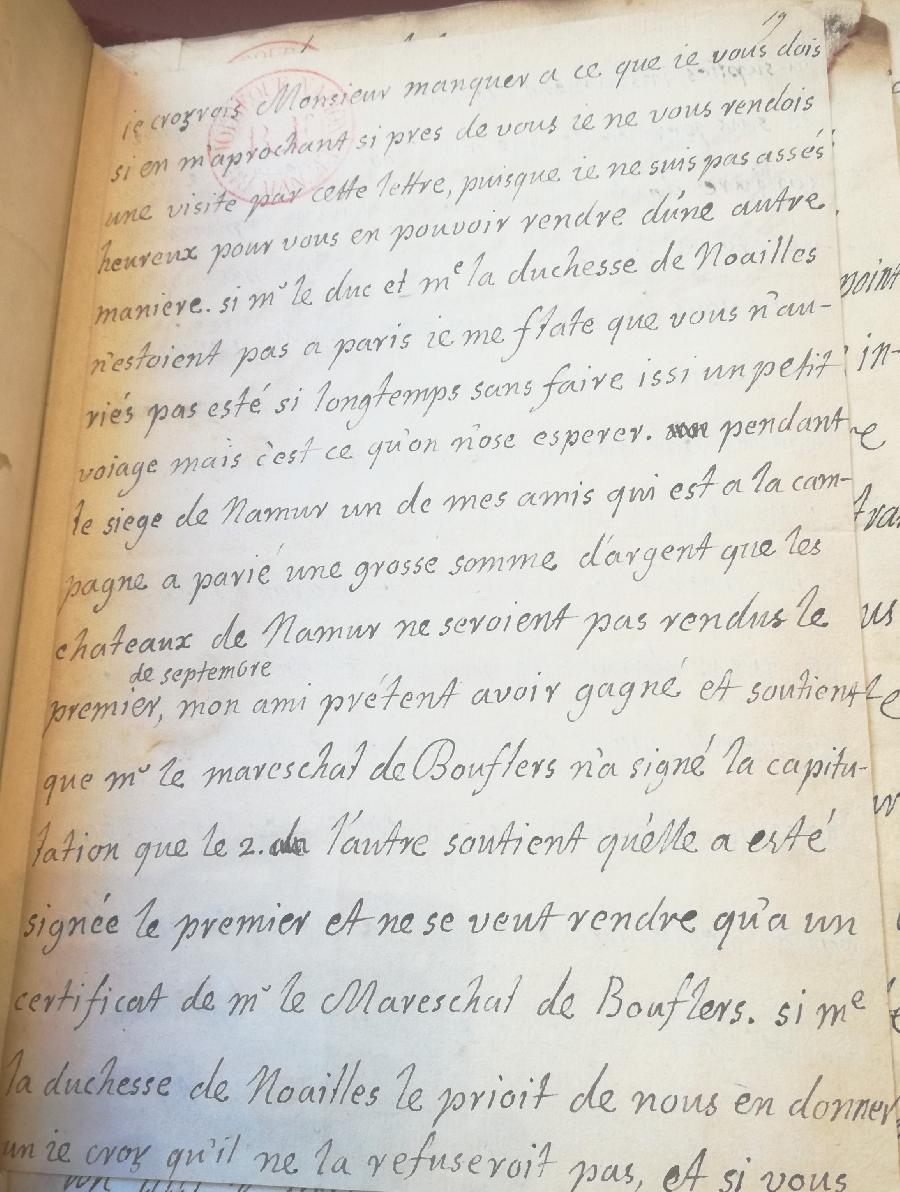 19
ie croyrois Monsieur manquer a ce que ie vous dois
si en m'aprochant si pres de vous ie ne vous rendois
une visite par cette lettre, puisque ie ne suis pas assés
heureux pour vous en pouvoir rendre d'une autre
maniere. si mr le duc et me la duchesse de Noailles
n'estoient pas a paris ie me flate que vous n'au-
riés pas esté si longtemps sans faire issi un petit
voiage mais c'est ce qu'on n'ose esperer. pendant
le siege de Namur un de mes amis qui est a la cam-
pagne a parié une grosse somme d'argent que les
chateaux de Namur ne seroient pas rendus le
de septembre
premier, mon ami prétent avoir gagné et soutient
que mr le mareschal de Bouflers n'a signé la capitu-
lation que le 2. l'autre soutient qu'elle a esté
signée le premier et ne se veut rendre qu'a un
certificat de mr le Mareschal de Bouflers. si me
la duchesse de Noailles le prioit de nous en donner
un ie croy qu'il ne la refuseroit pas, et si vous
point
in-
us